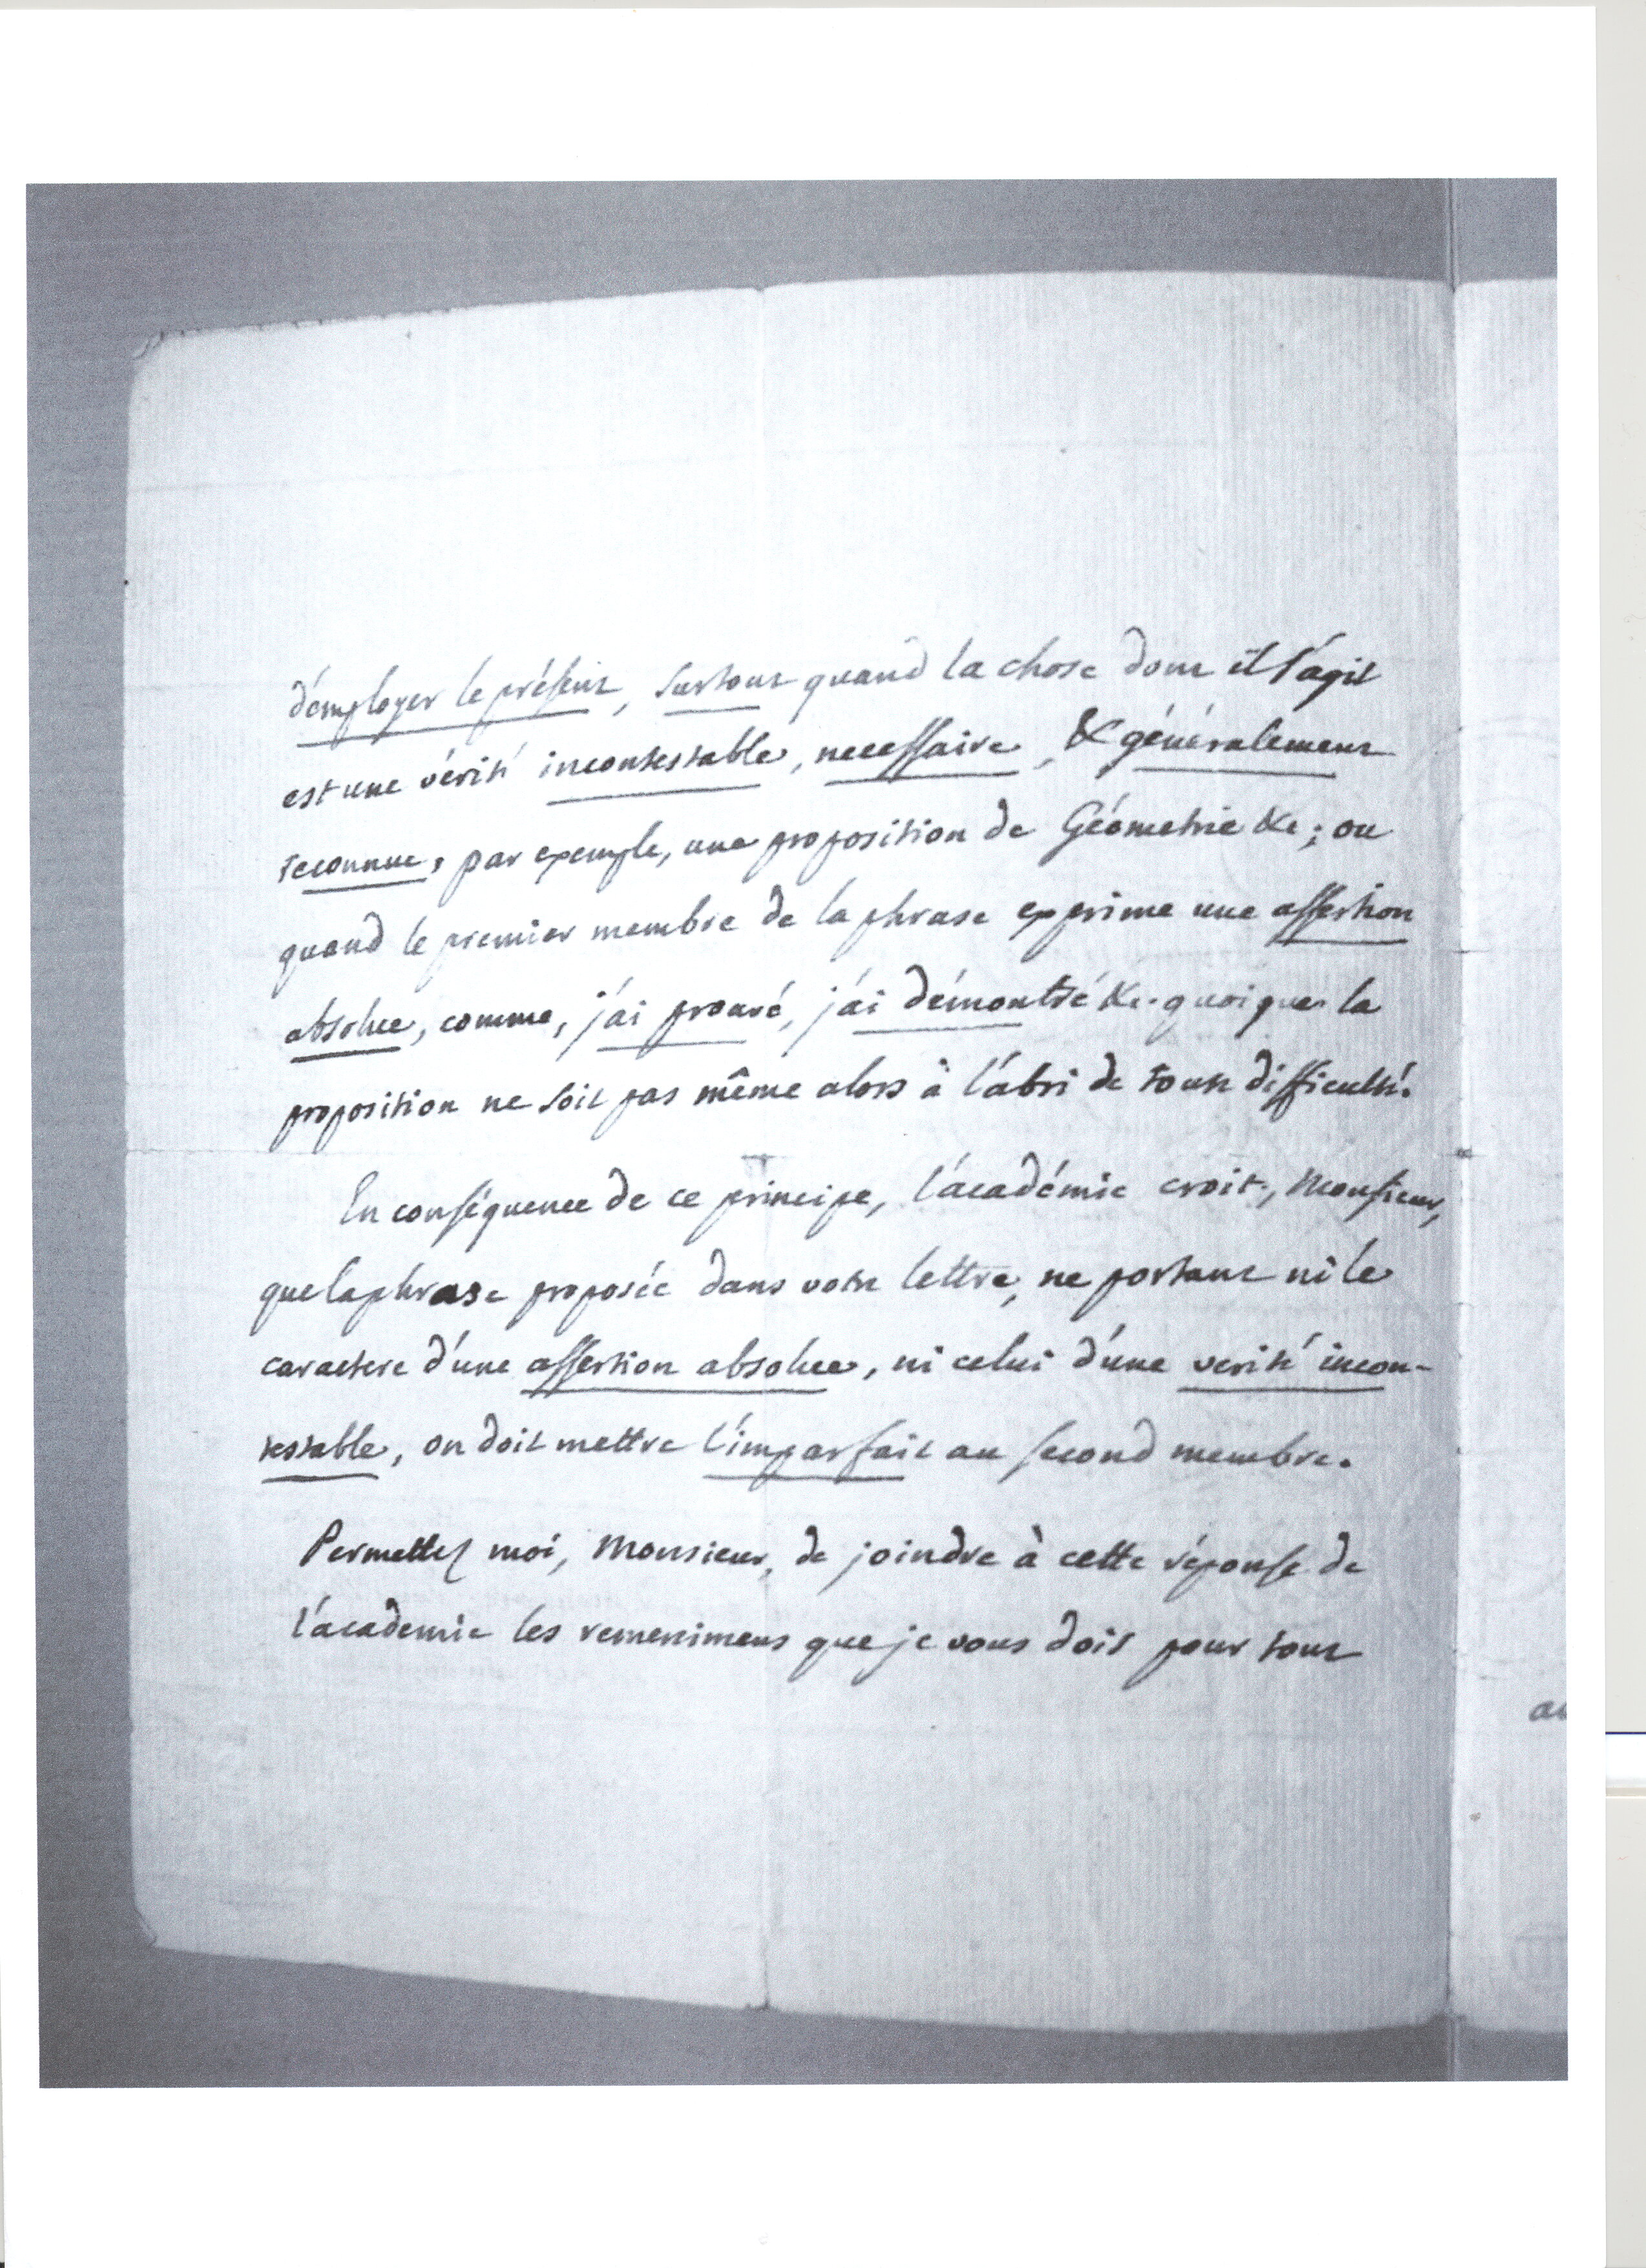 d'employer le présent, surtout quand la chose dont il s'agit
est une vérité incontestable, necessaire, & généralement
reconnue, par exemple, une proposition de Géometrie &c; ou
quand le premier membre de la phrase exprime une assertion
absolue, comme, j'ai prouvé, j'ai démontré &c. quoique la
proposition ne soit pas même alors à l'abri de toute difficulté.
En conséquence de ce principe, l'académie croit, Monsieur,
que la phrase proposée dans votre lettre, ne portant ni le
caractere d'une assertion absolue, ni celui d'une verité incon-
testable, on doit mettre l'imparfait au second membre.
Permettez moi, Monsieur, de joindre à cette réponse de
l'academie les remerciments que je vous dois pour tout